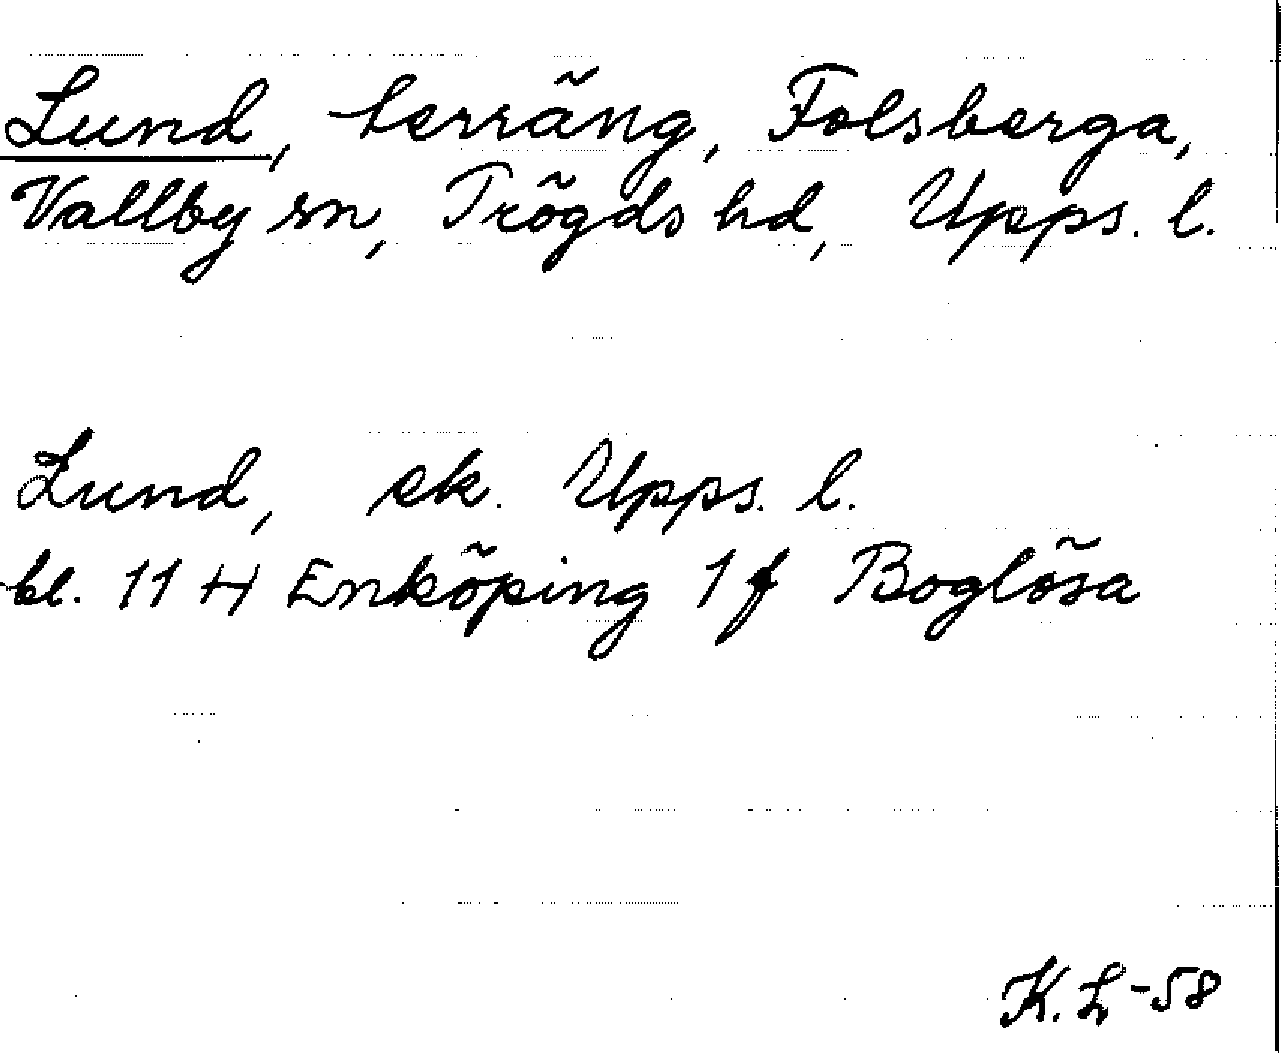 Lund, terräng, Folsberga,
Vallby sn, Trögds hd, Upps. l.
Lund, ek. Upps. l.
bl. 11 H Enköping 1 f Boglösa
K. L -58